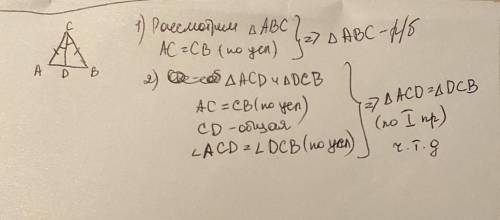 C
A D B
1) Рассмотрим △ABC
AC = CB (по усл) } => △ABC - р/б
2) △ACD и △DCB
AC = CB (по усл)
CD - общая
∠ACD = ∠DCB (по усл) } => △ACD = △DCB
(по I пр)
ч.т.д